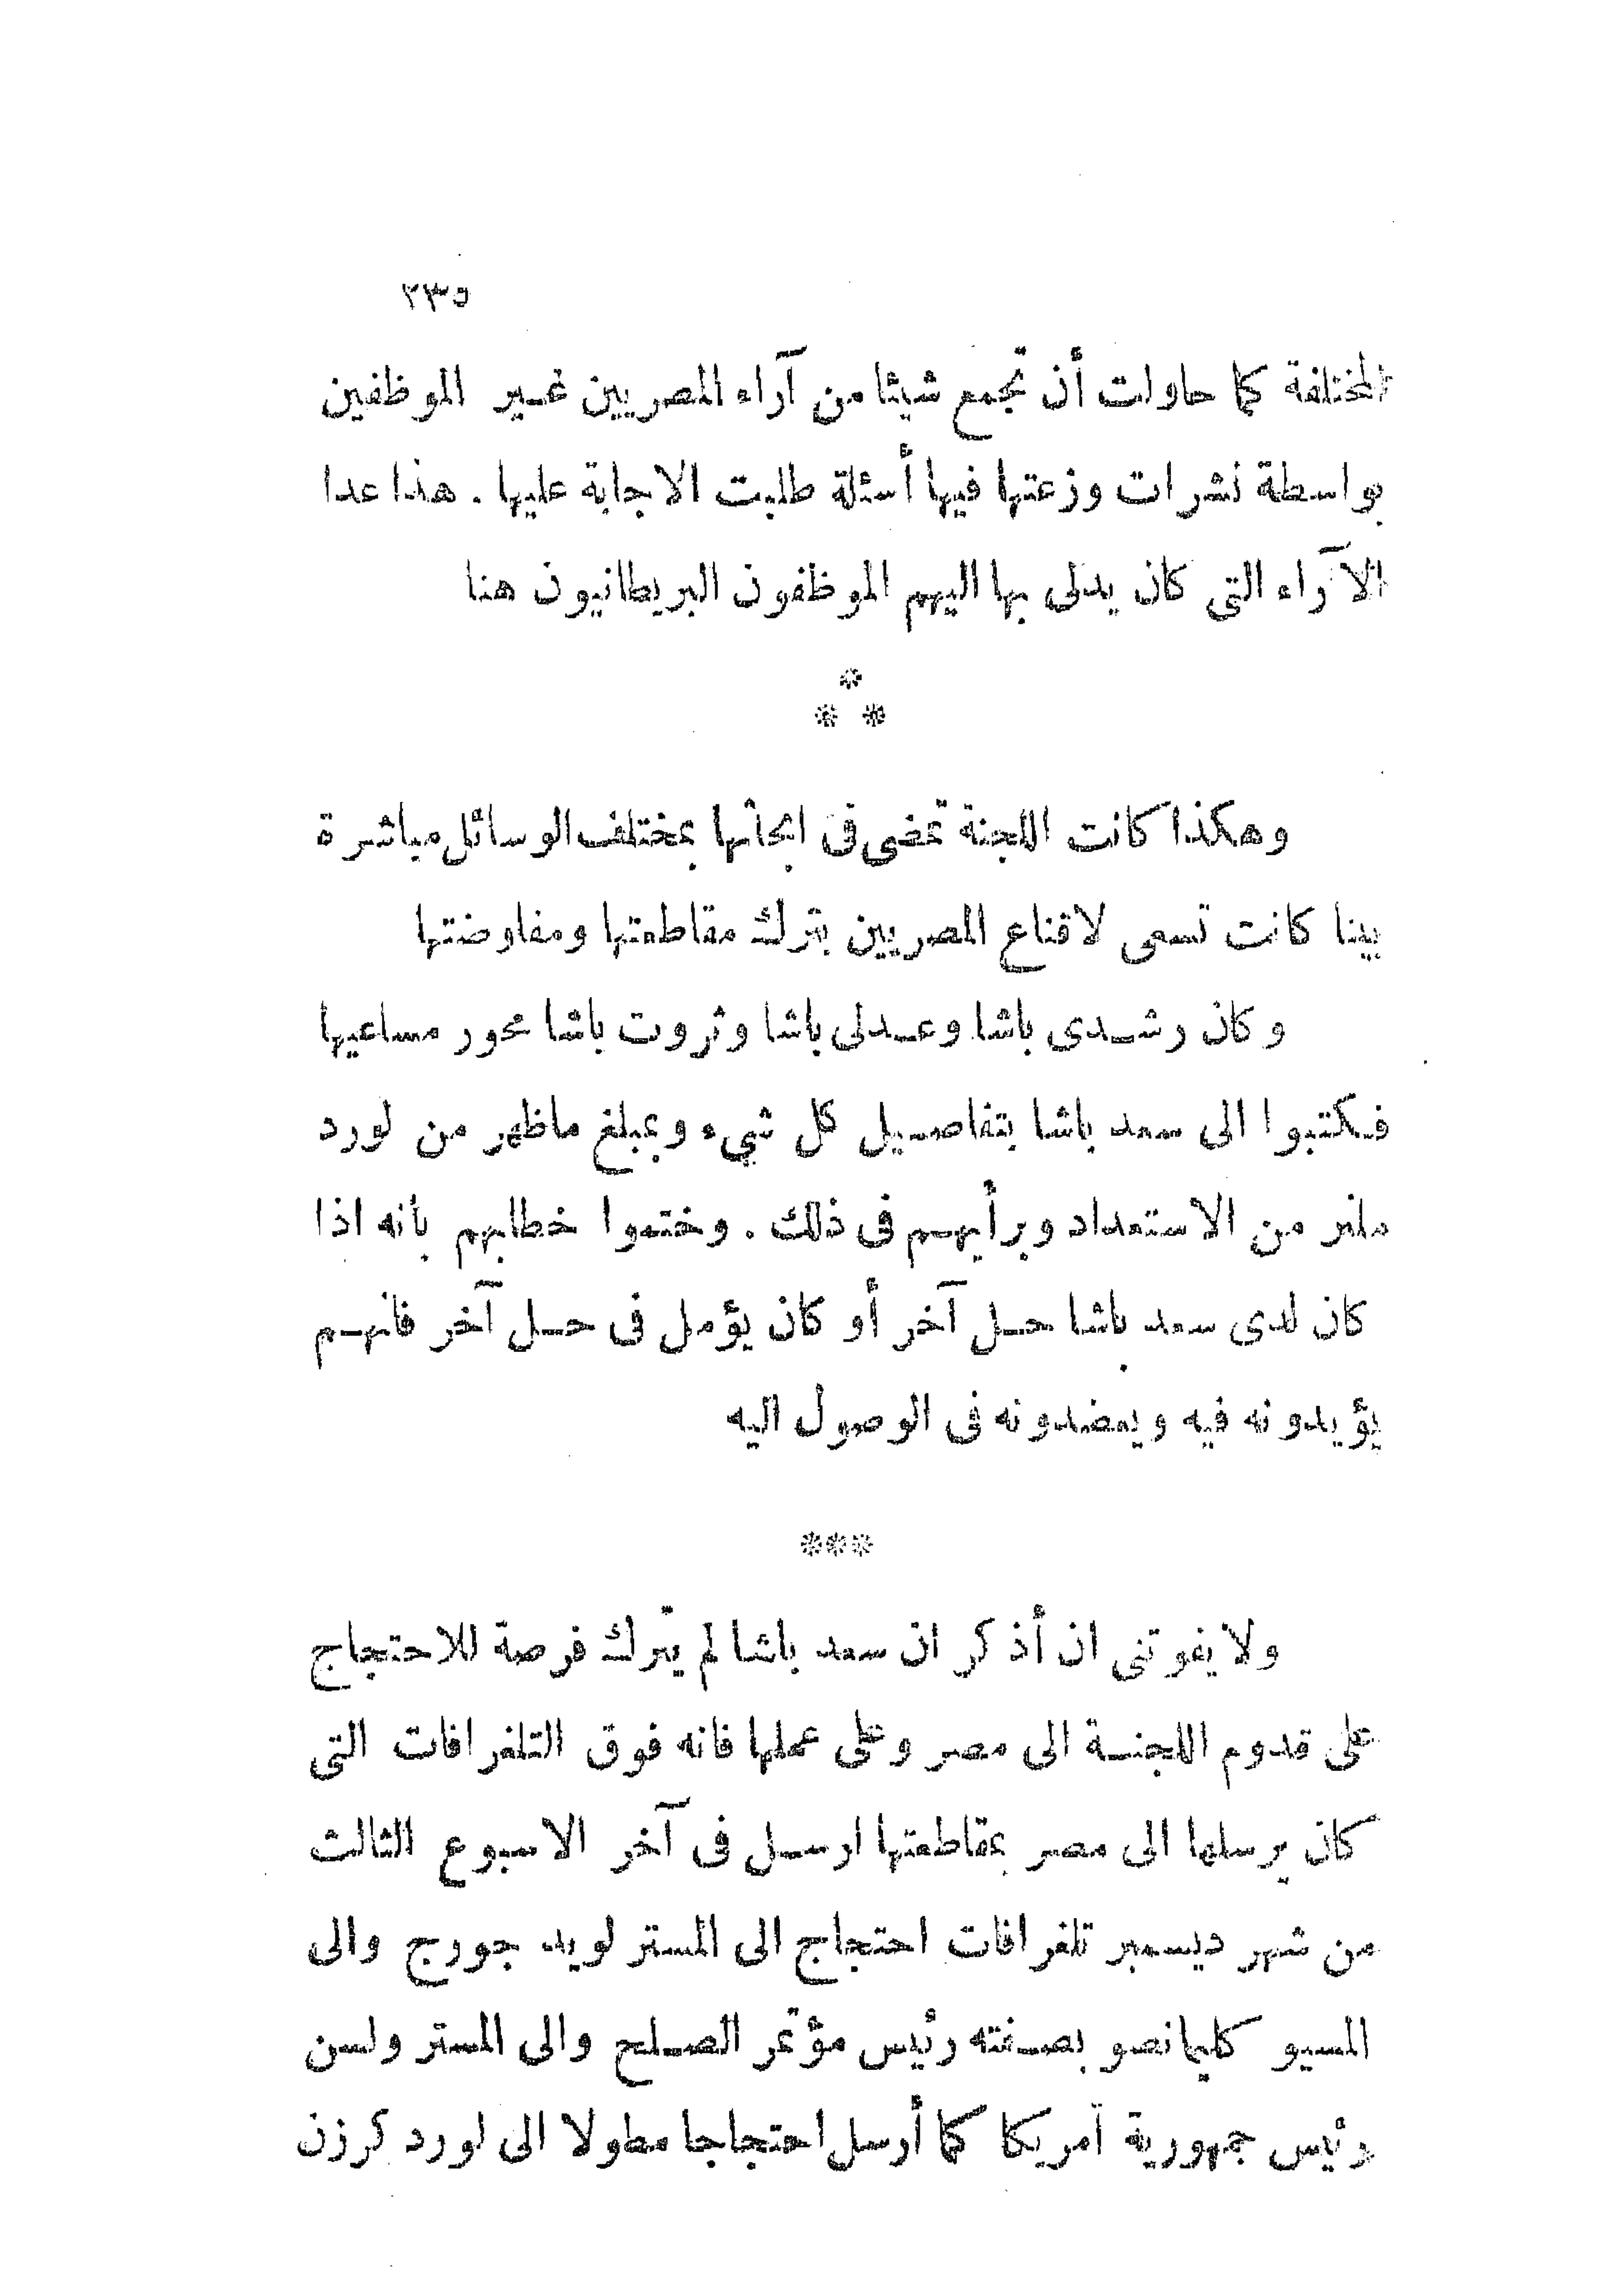 ٢٣٥
المختلفة كما حاولت أن تجمع شيئا من آراء المصريين غـير الموظفين
بواسطة نشرات وزعتها فيها أسئلة طلبت الاجابة عليها . هذا عدا
الآراء التي كان يدلى بها اليهم الموظفون البريطانيون هنا
*
* *
وهكذا كانت اللجنة تمضى فى ابحاثها بمختلف الوسائل مباشرة
بينا كانت تسعى لاقناع المصريين بترك مقاطعتها ومفاوضتها
وكان رشـدى باشا وعـدلى باشا وثروت باشا محور مساعيها
فـكتبوا الى سعد باشا بتفاصـيل كل شيء وبمبلغ ماظهر من لورد
ملنر من الاستعداد وبرأيهـم فى ذلك . وختموا خطابهم بأنه اذا
كان لدى سعد باشا حـل آخر أو كان يؤمل فى حـل آخر فانهـم
يؤيدونه فيه ويعضدونه فى الوصول اليه
***
ولا يفوتنى ان أذكر ان سعد باشا لم يترك فرصة للاحتجاج
على قدوم اللجنـة الى مصر وعلى عملها فانه فوق التلغرافات التى
كان يرسلها الى مصر بمقاطعتها ارسـل فى آخر الاسبوع الثالث
من شهر ديسمبر تلغرافات احتجاج الى المستر لويد جورج والى
المسيو كليمانصو بصـفته رئيس مؤتمر الصـلح والى المستر ولسن
رئيس جمهورية أمريكا كما أرسل احتجاجا مطولا الى لورد كرزن